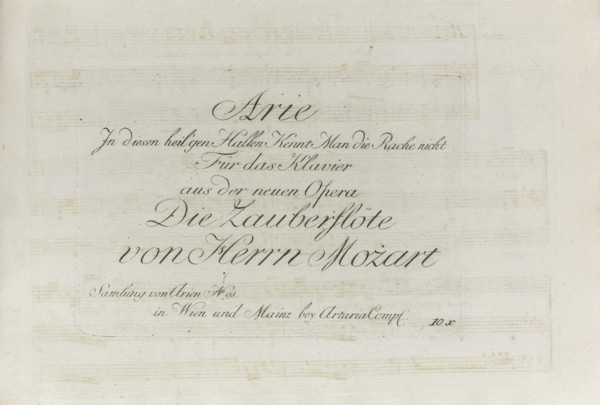 Arie
In diesen heil'gen Hallen Kennt Man die Rache nicht
Für das Klavier
aus der neuen Opera
Die Zauberflöte
von Herrn Mozart
Samlung von Arien N.
in Wien und Mainz bey Artaria Comp.
10 x